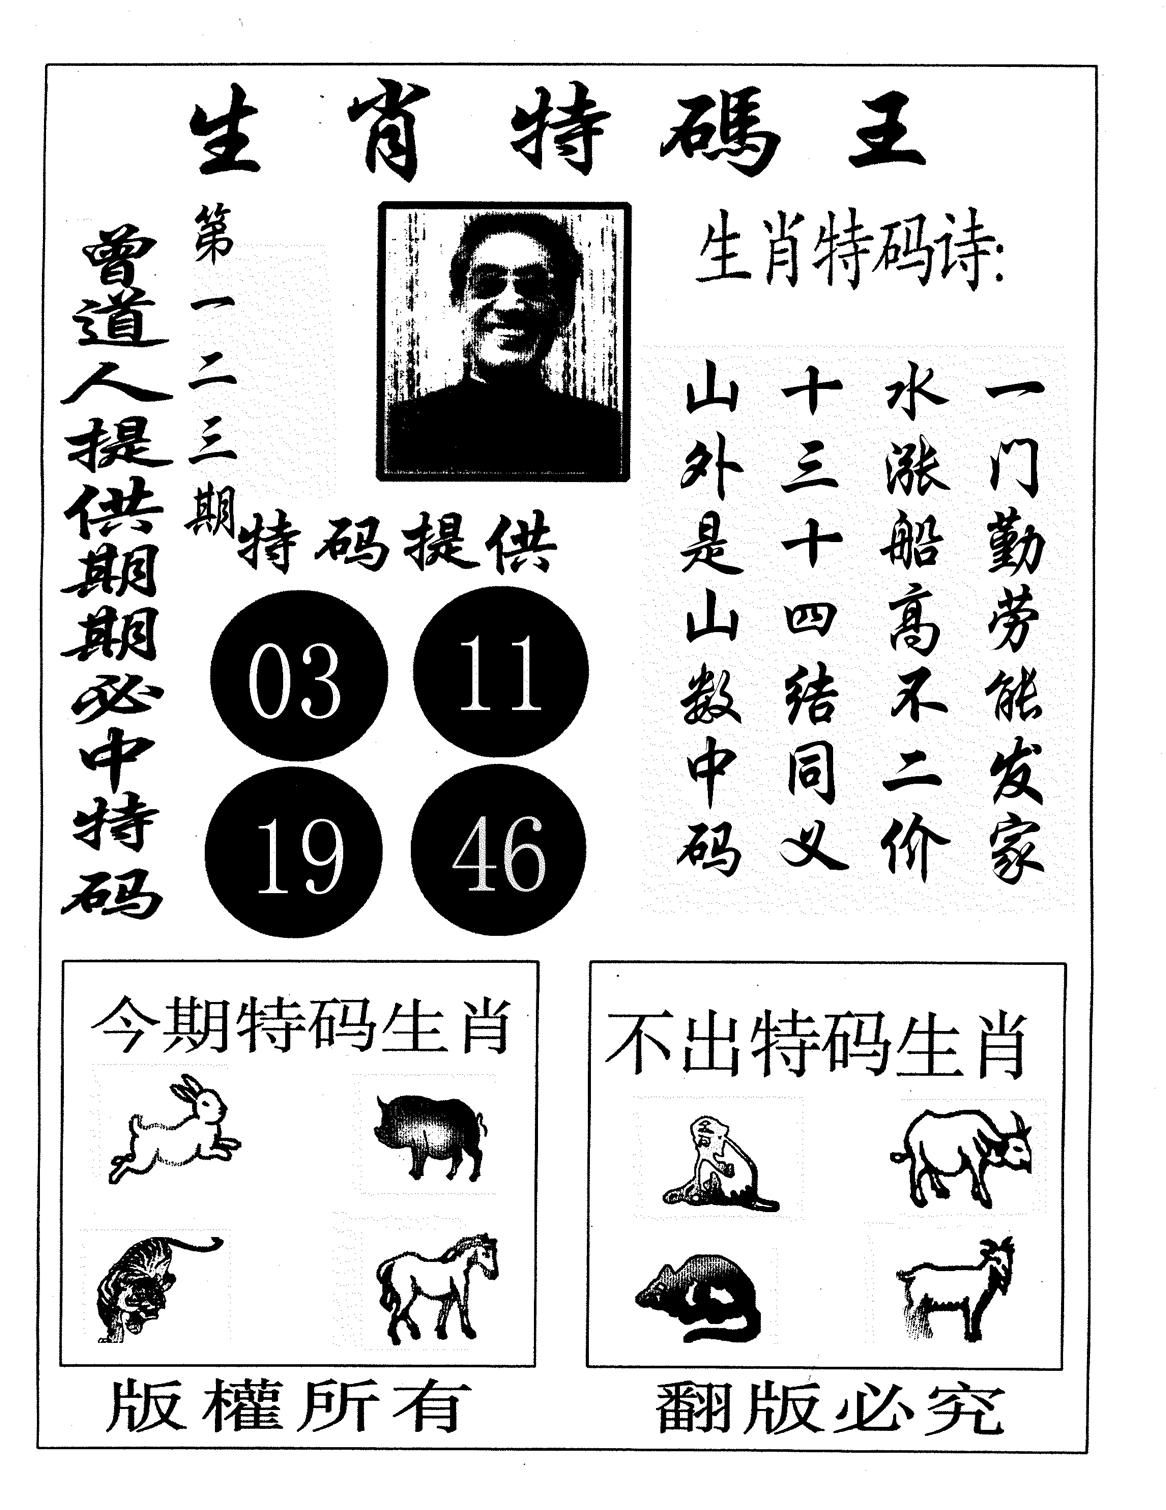 生肖特碼王
第一二三期
曾道人提供期期必中特码
生肖特码诗:
一门勤劳能发家
水涨船高不二价
十三十四结同义
山外是山数中码
特码提供
03 11
19 46
今期特码生肖
不出特码生肖
版權所有
翻版必究